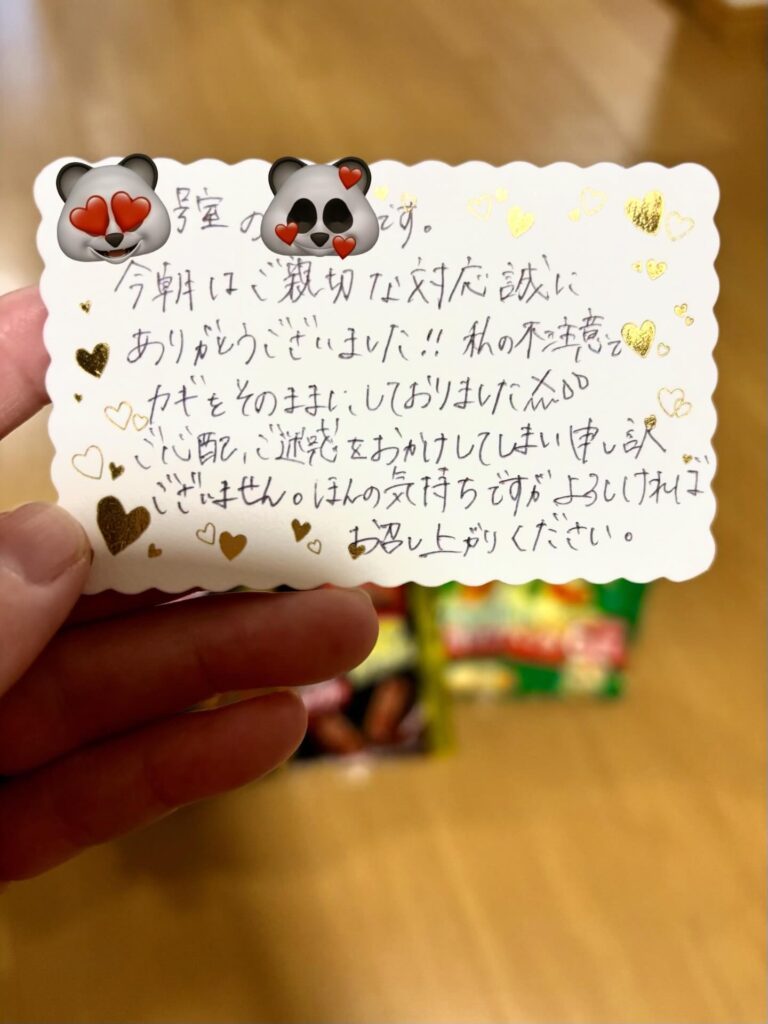 号室の です。
今朝はご親切な対応誠に
ありがとうございました!! 私の不注意で
カギをそのままにしておりました
ご心配、ご迷惑をおかけしてしまい申し訳
ございません。ほんの気持ちですがよろしければ
お召し上がりください。